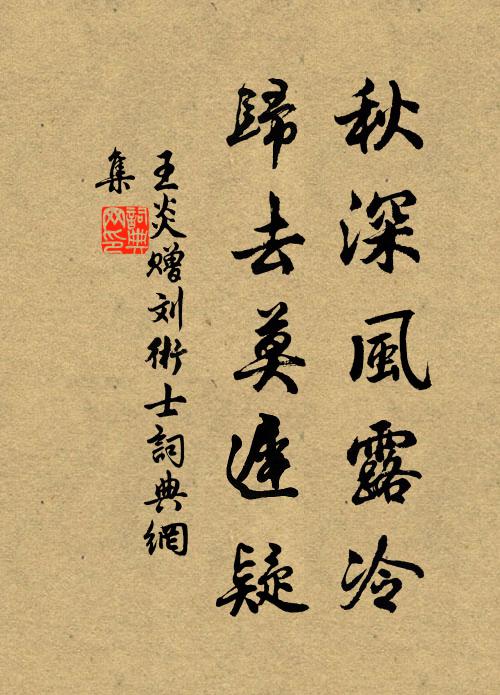 秋深風露冷
歸去莫遲疑
王炎贈刘術士詞典網
集
詞典網印